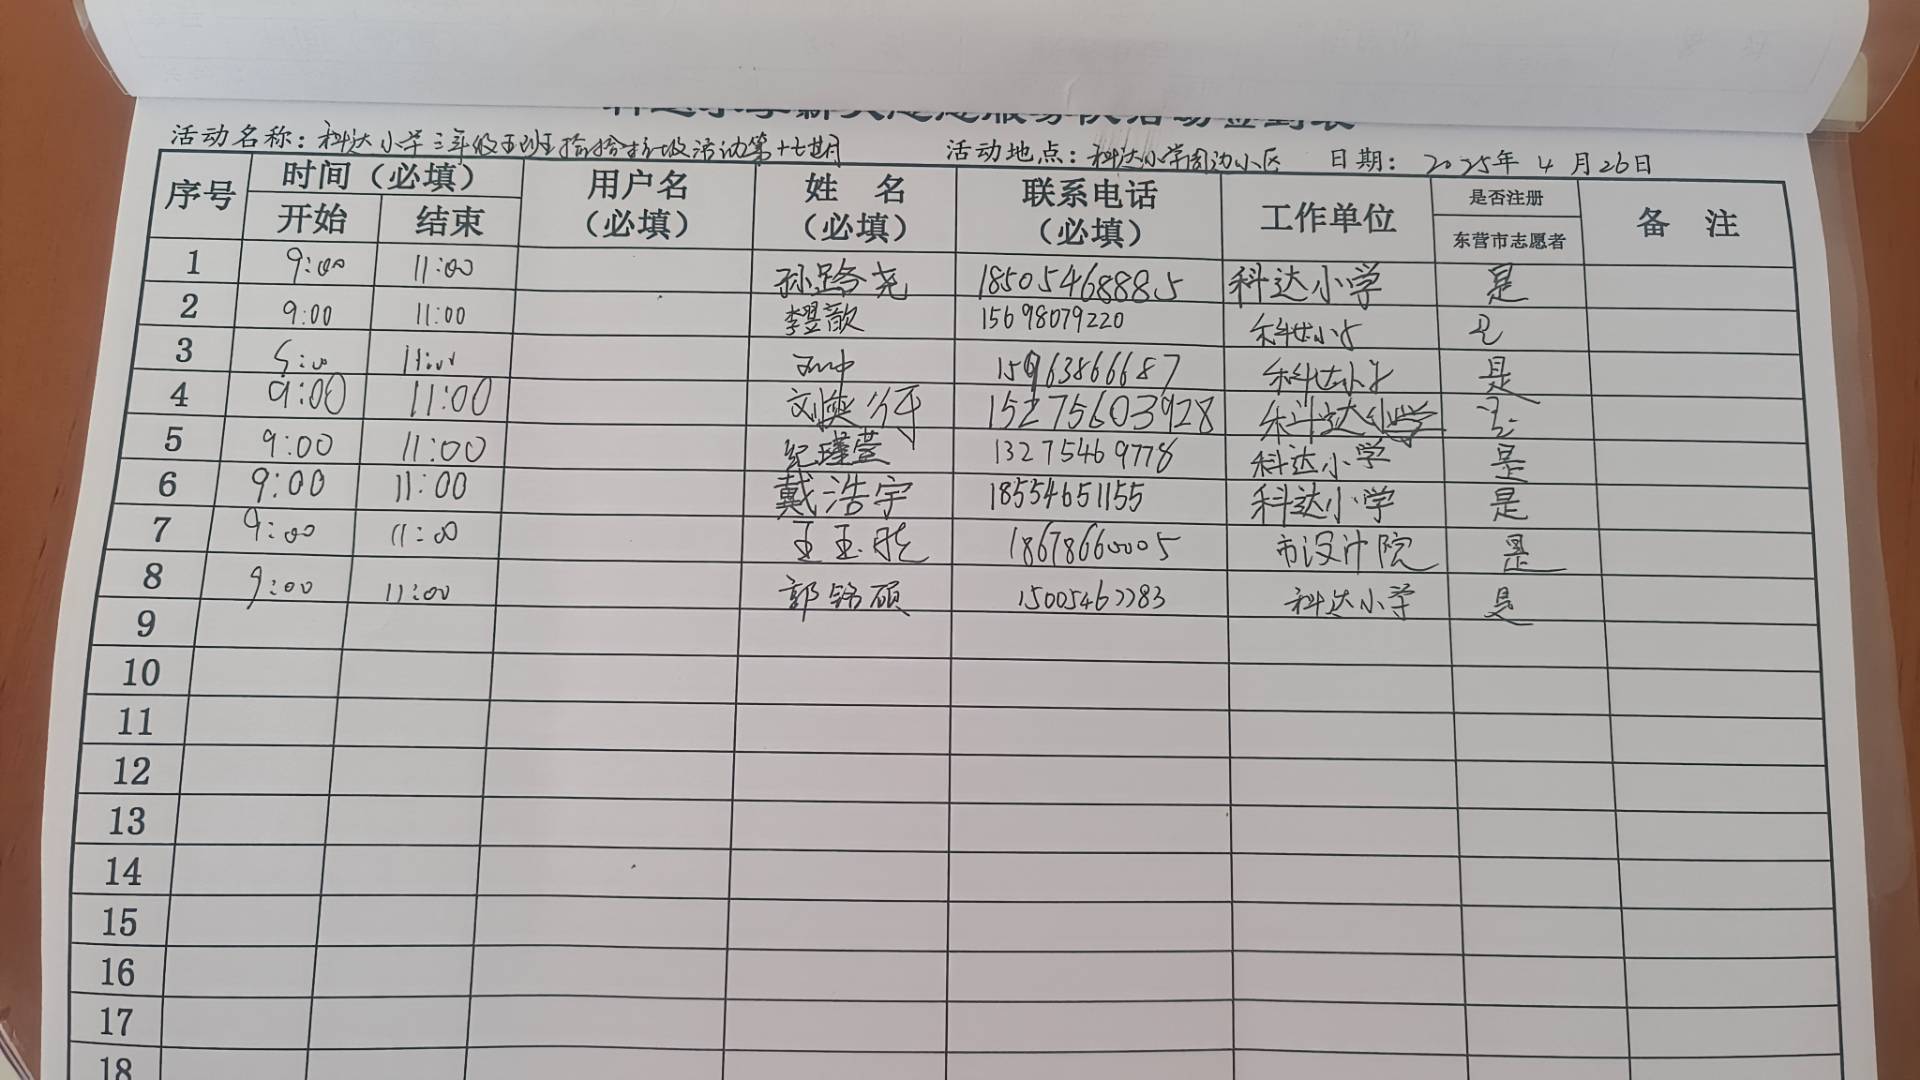 活动名称：科达小学三年级五班捡拾垃圾活动第十七期 活动地点：科达小学周边小区 日期：2025年4月26日
序号 时间（必填） 用户名（必填） 姓名（必填） 联系电话（必填） 工作单位 是否注册 备注
开始 结束 东营市志愿者
1 9:00 11:00 孙路尧 18505468885 科达小学 是
2 9:00 11:00 李翌歆 15698079220 科达小学
3 11:00 15963866687 科达小学 是
4 9:00 11:00 15275603928 科达小学 是
5 9:00 11:00 纪瑾萱 13275469778 科达小学 是
6 9:00 11:00 戴浩宇 18554651155 科达小学 是
7 9:00 11:00 18678660005 市设计院 是
8 9:00 11:00 郭铭硕 15005467783 科达小学 是
9
10
11
12
13
14
15
16
17
18